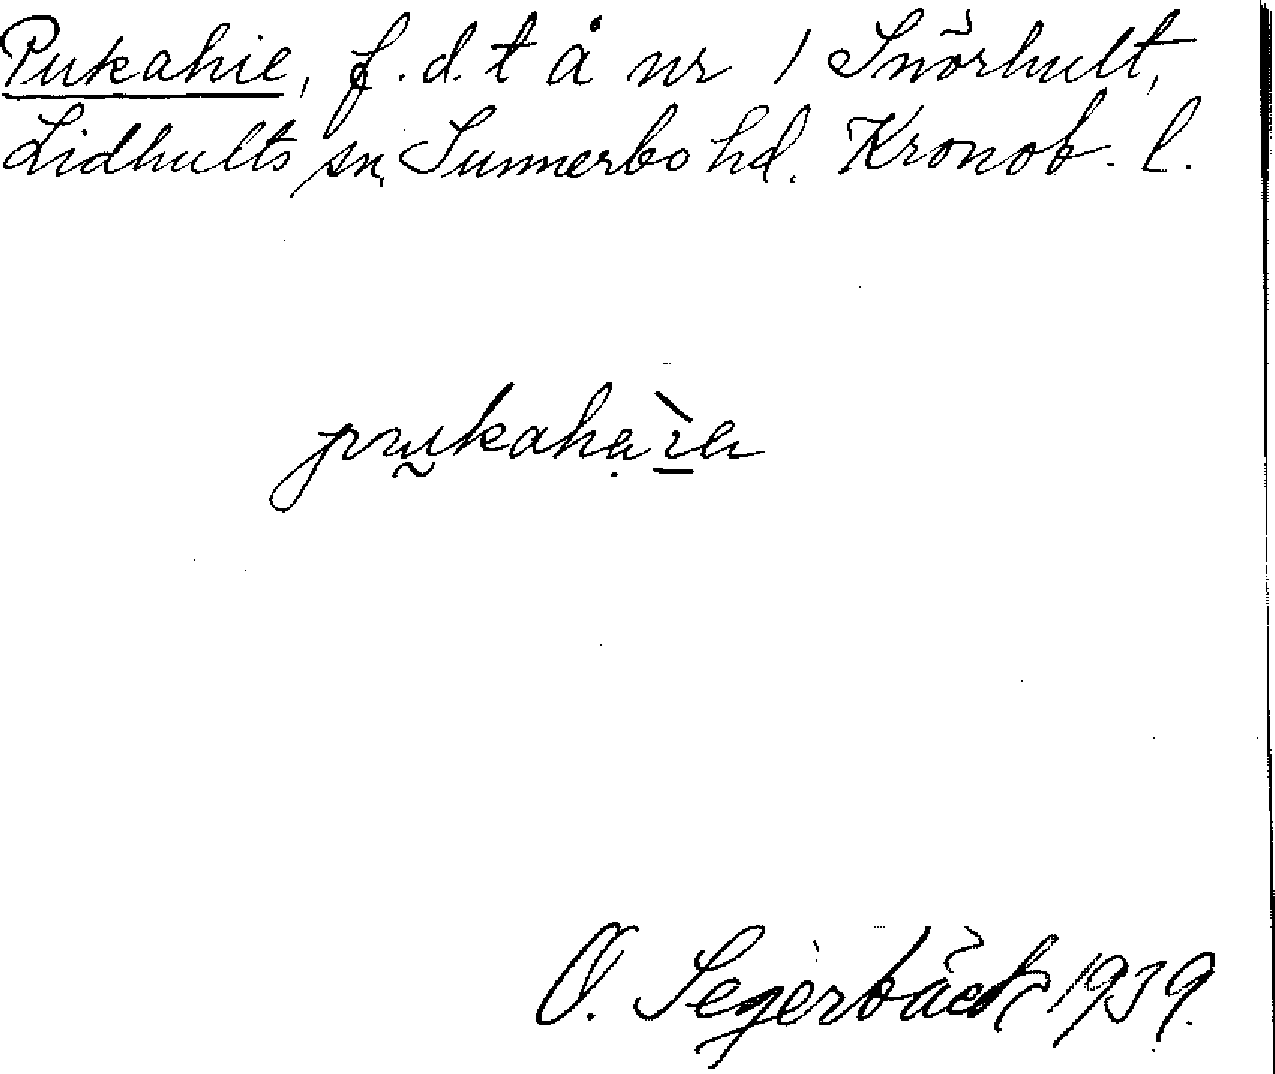 Pukahie, f.d. t å nr 1 Snörhult,
Lidhults sn, Sunnerbo hd. Kronob. l.
O. Segerbäck 1939.